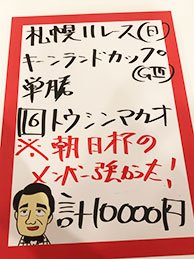 札幌11レス(日)
キーンランドカップ
(GⅢ)
単勝
16 トウシンマカオ
※朝日杯の
メンバー強かった!
計10000円